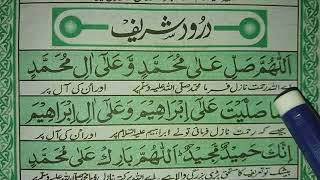 درود شریف
اَللّٰهُمَّ صَلِّ عَلٰی مُحَمَّدٍ وَّعَلٰٓی اٰلِ مُحَمَّدٍ
اے اللہ رحمت نازل فرما محمد صلی اللہ علیہ وسلم پر اور ان کی آل پر
صَلَّیْتَ عَلٰٓی اِبْرَاهِیْمَ وَعَلٰٓی اٰلِ اِبْرَاهِیْمَ
جیسے کہ رحمت نازل فرمائی تو نے ابراہیم علیہ السلام پر اور ان کی آل پر
اِنَّكَ حَمِیْدٌ مَّجِیْدٌ اَللّٰهُمَّ بَارِكْ عَلٰی مُحَمَّدٍ
بزرگی والا ہے اے اللہ برکت نازل فرما